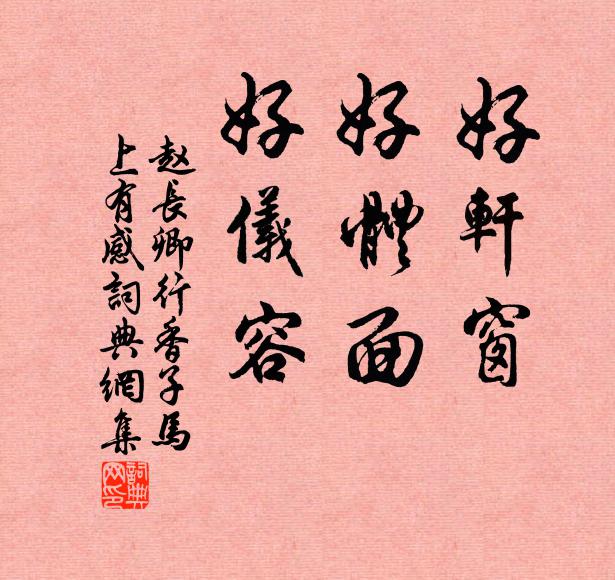 好軒窗
好體面
好儀容
赵長卿行香子馬
上有感詞典網集
詞典
网印